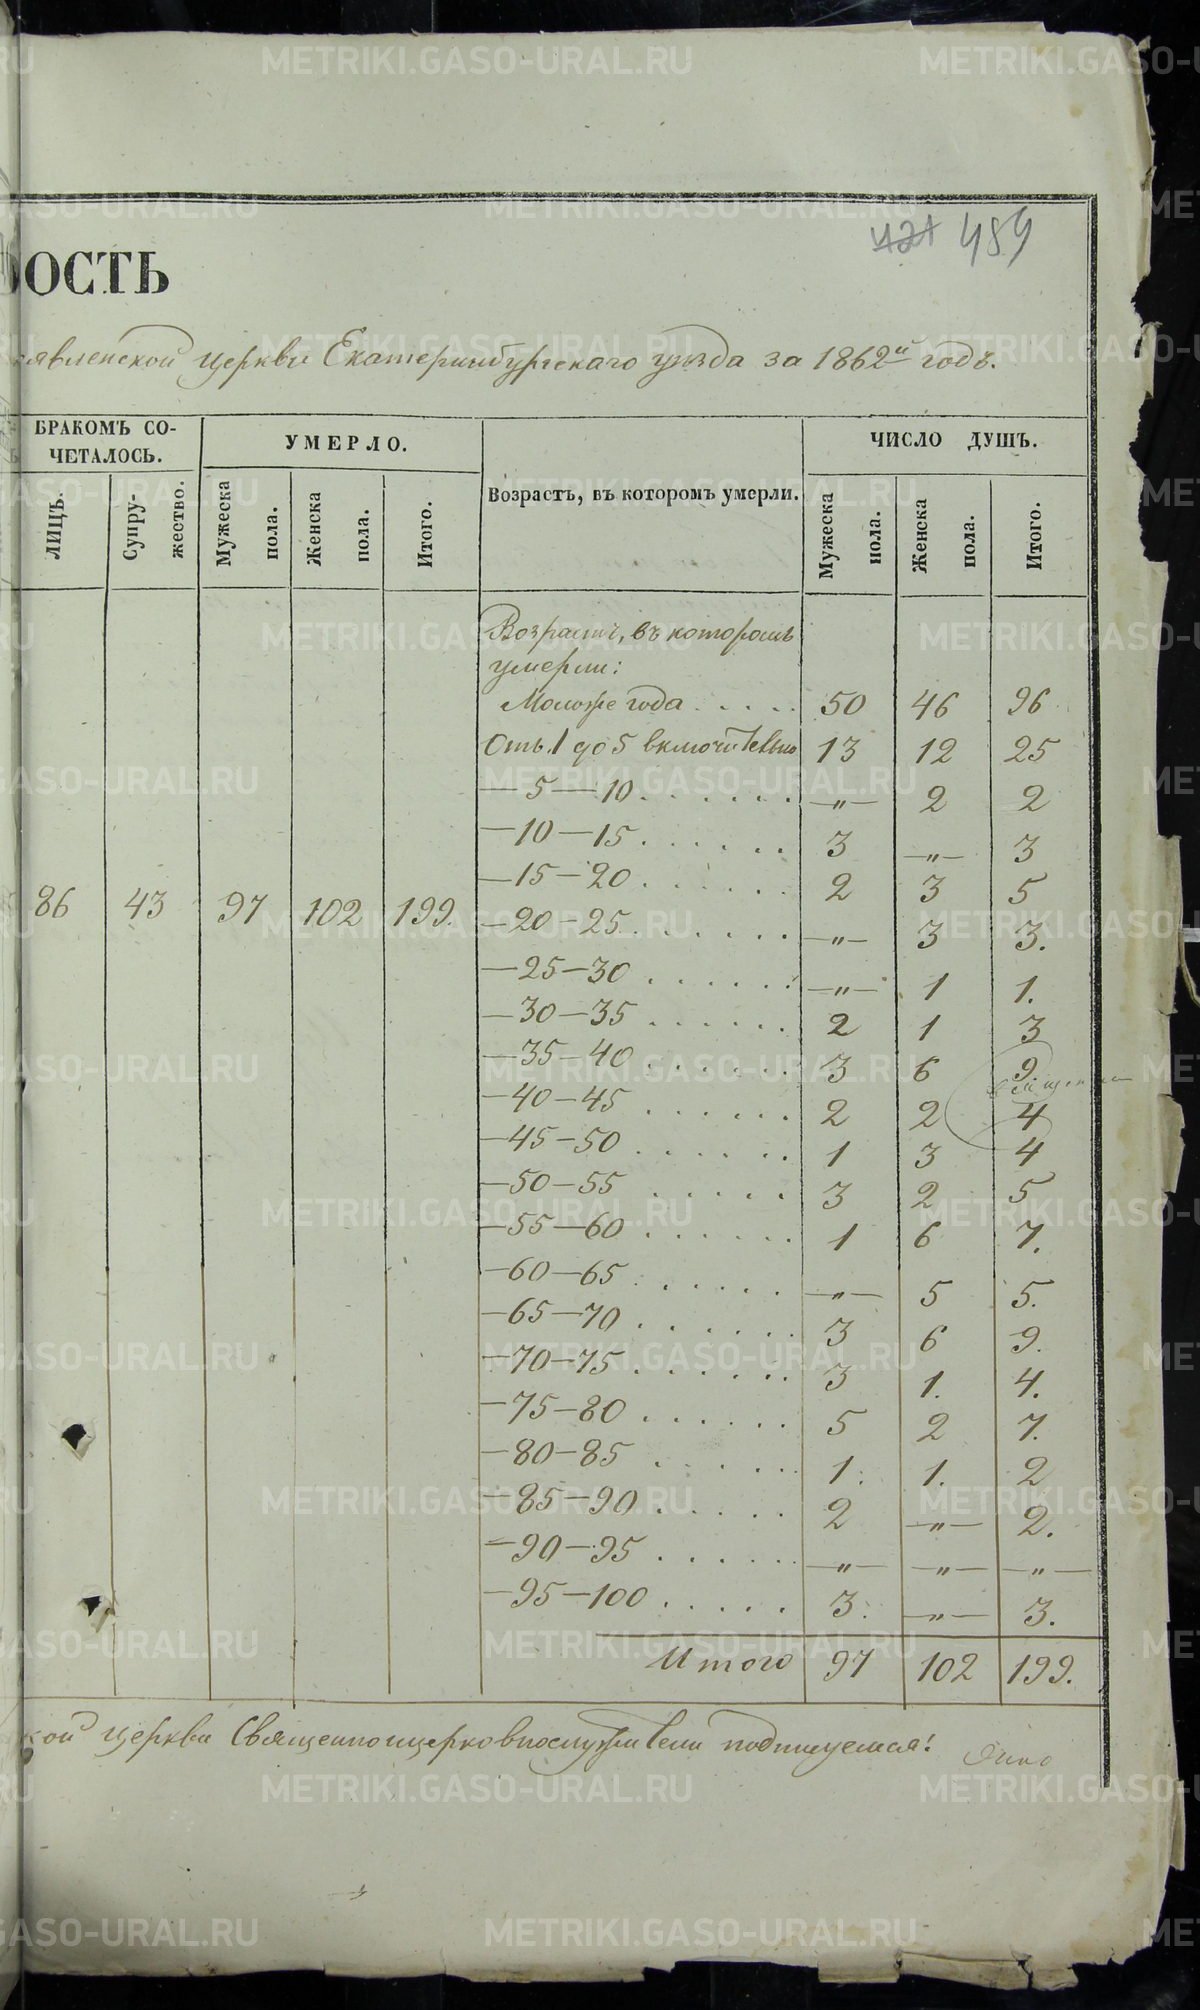 484
ОСТЬ
явленской церкви Екатеринбургскаго уезда за 1862й годъ.
БРАКОМЪ СО-
ЧЕТАЛОСЬ.
УМЕРЛО.
Возрастъ, въ которомъ умерли.
ЧИСЛО ДУШЪ.
ЛИЦЪ.
Супру-
жество.
Мужеска
пола.
Женска
пола.
Итого.
Мужеска
пола.
Женска
пола.
Итого.
Возрастъ, въ которомъ
умерли:
Моложе года . . . . . 50 46 96
Отъ 1 до 5 включительно 13 12 25
—5—10 . . . . . . —„— 2 2
—10—15 . . . . . . 3 —„— 3
—15—20 . . . . . . 2 3 5
86 43 97 102 199. —20—25 . . . . . . —„— 3 3.
—25—30 . . . . . . —„— 1 1.
—30—35 . . . . . . 2 1 3
—35—40 . . . . . . 3 6 9
—40—45 . . . . . . 2 2 4
—45—50 . . . . . . 1 3 4
—50—55 . . . . . 3 2 5
—55—60 . . . . . . 1 6 7.
—60—65 . . . . . . —„— 5 5.
—65—70 . . . . . . 3 6 9.
—70—75 . . . . . . 3 1. 4.
—75—80 . . . . . . 5 2 7.
—80—85 . . . . . 1. 1. 2
—85—90 . . . . . 2 —„— 2.
—90—95 . . . . . . —„— —„— —„—
—95—100 . . . . . 3. —„— 3.
Итого 97 102 199.
кой церкви Священноцерковнослужители подписуемся:
METRIKI.GASO-URAL.RU